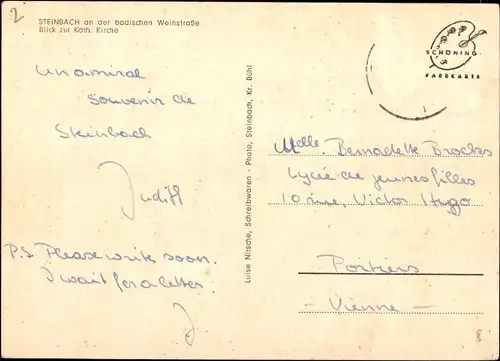 2
STEINBACH an der badischen Weinstraße
Blick zur Kath. Kirche
SCHÖNING
FARBKARTE
Un amical
souvenir de
Steinbach
Judith
P.S. Please write soon.
I wait for a letter.
J
Luise Nitsche, Schreibwaren - Photo, Steinbach, Kr. Bühl
Melle. Bernadette Broches
Lycée de jeunes filles
10 rue, Victor Hugo
Poitiers
- Vienne -